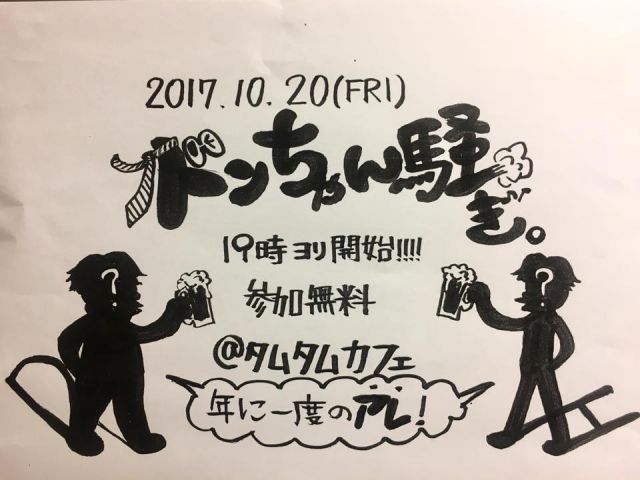 2017.10.20(FRI)
ドンちゃん騒ぎ。
19時ヨリ開始!!!!
参加無料
@タムタムカフェ
年に一度のアレ!
?
?